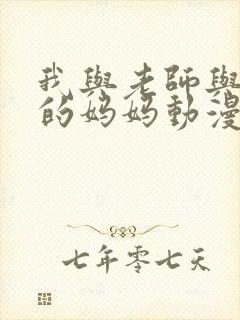 我與老師與
的妈妈動漫
七年零七天